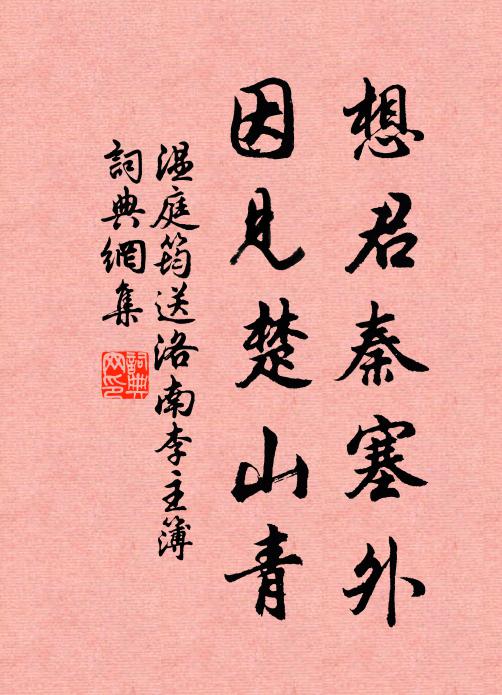 想君秦塞外
因見楚山青
温庭筠送洛南李主簿
詞典網集
詞典网印